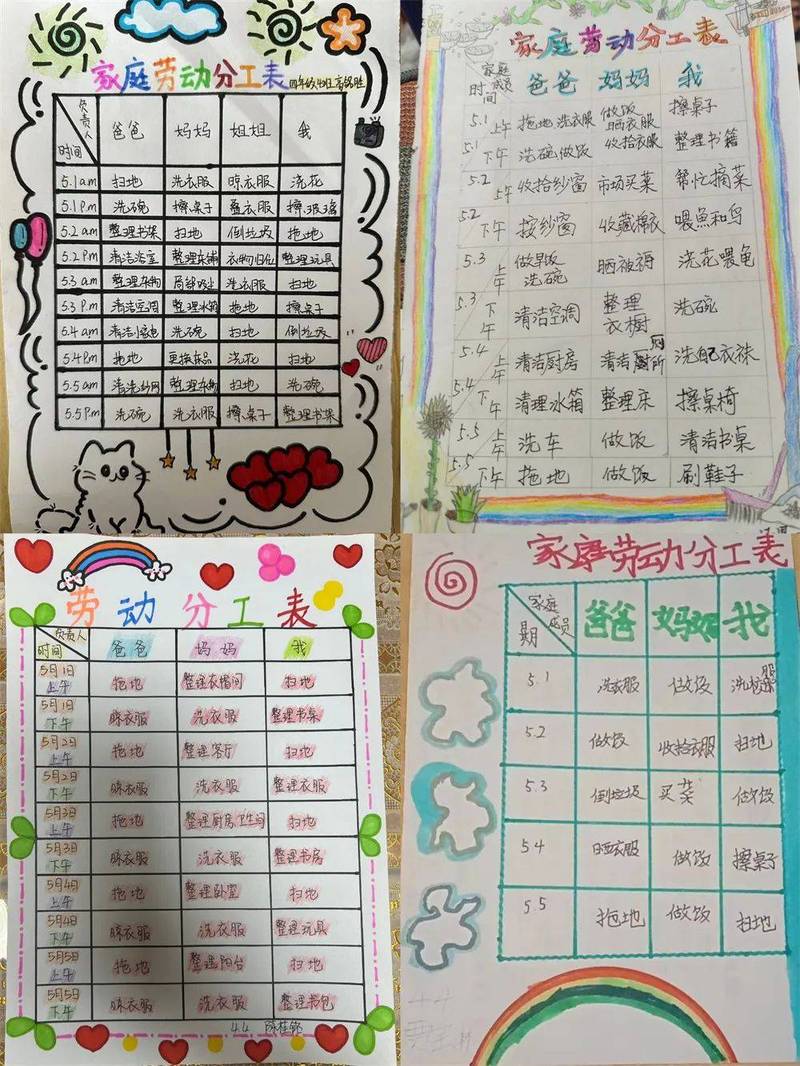 家庭劳动分工表
负责人 时间 爸爸 妈妈 姐姐 我
5.1am 扫地 洗衣服 晾衣服 浇花
5.1P.m 洗碗 擦桌子 叠衣服 擦玻璃
5.2am 整理书架 扫地 倒垃圾 拖地
5.2P.m 清洁浴室 整理床铺 衣物归位 整理玩具
5.3am 洗衣服 扫地
5.3P.m 清洁空调 整理冰箱 拖地 擦桌子
5.4am 洗碗 扫地 倒垃圾
5.4P.m 拖地 浇花 扫地
5.5am 扫地 洗碗
5.5P.m 洗碗 洗衣服 擦桌子 整理书架
家庭劳动分工表
家庭成员 时间 爸爸 妈妈 我
5.1上午 拖地 洗衣服 做饭 晒衣服 擦桌子
5.1下午 洗碗做饭 收拾衣服 整理书籍
5.2上午 收拾纱窗 市场买菜 帮忙摘菜
5.2下午 按纱窗 收藏棉衣 喂魚和鸟
5.3上午 做早饭 洗碗 晒被褥 浇花喂龟
5.3下午 清洁空调 整理衣橱 洗碗
5.4上午 清洁厨房 清洁厕所 洗自己衣袜
5.4下午 清理冰箱 整理床 擦桌椅
5.5上午 洗车 做饭 清洁书桌
5.5下午 拖地 做饭 刷鞋子
劳动分工表
负责人 时间 爸爸 妈妈 我
5月1日上午 拖地 整理衣帽间 扫地
5月1日下午 晾衣服 洗衣服 整理书桌
5月2日上午 拖地 整理客厅 扫地
5月2日下午 晾衣服 洗衣服 整理衣服
5月3日上午 拖地 整理厨房卫生间 扫地
5月3日下午 晾衣服 洗衣服 整理书房
5月4日上午 拖地 整理卧室 扫地
5月4日下午 晾衣服 洗衣服 整理玩具
5月5日上午 拖地 整理阳台 扫地
5月5日下午 晾衣服 洗衣服 整理书包
4.4
家庭劳动分工表
家庭成员 期 爸爸 妈妈 我
5.1 洗衣服 做饭 洗校服
5.2 做饭 收拾衣服 扫地
5.3 倒垃圾 买菜 做饭
5.4 晒衣服 做饭 擦桌子
5.5 拖地 做饭 扫地